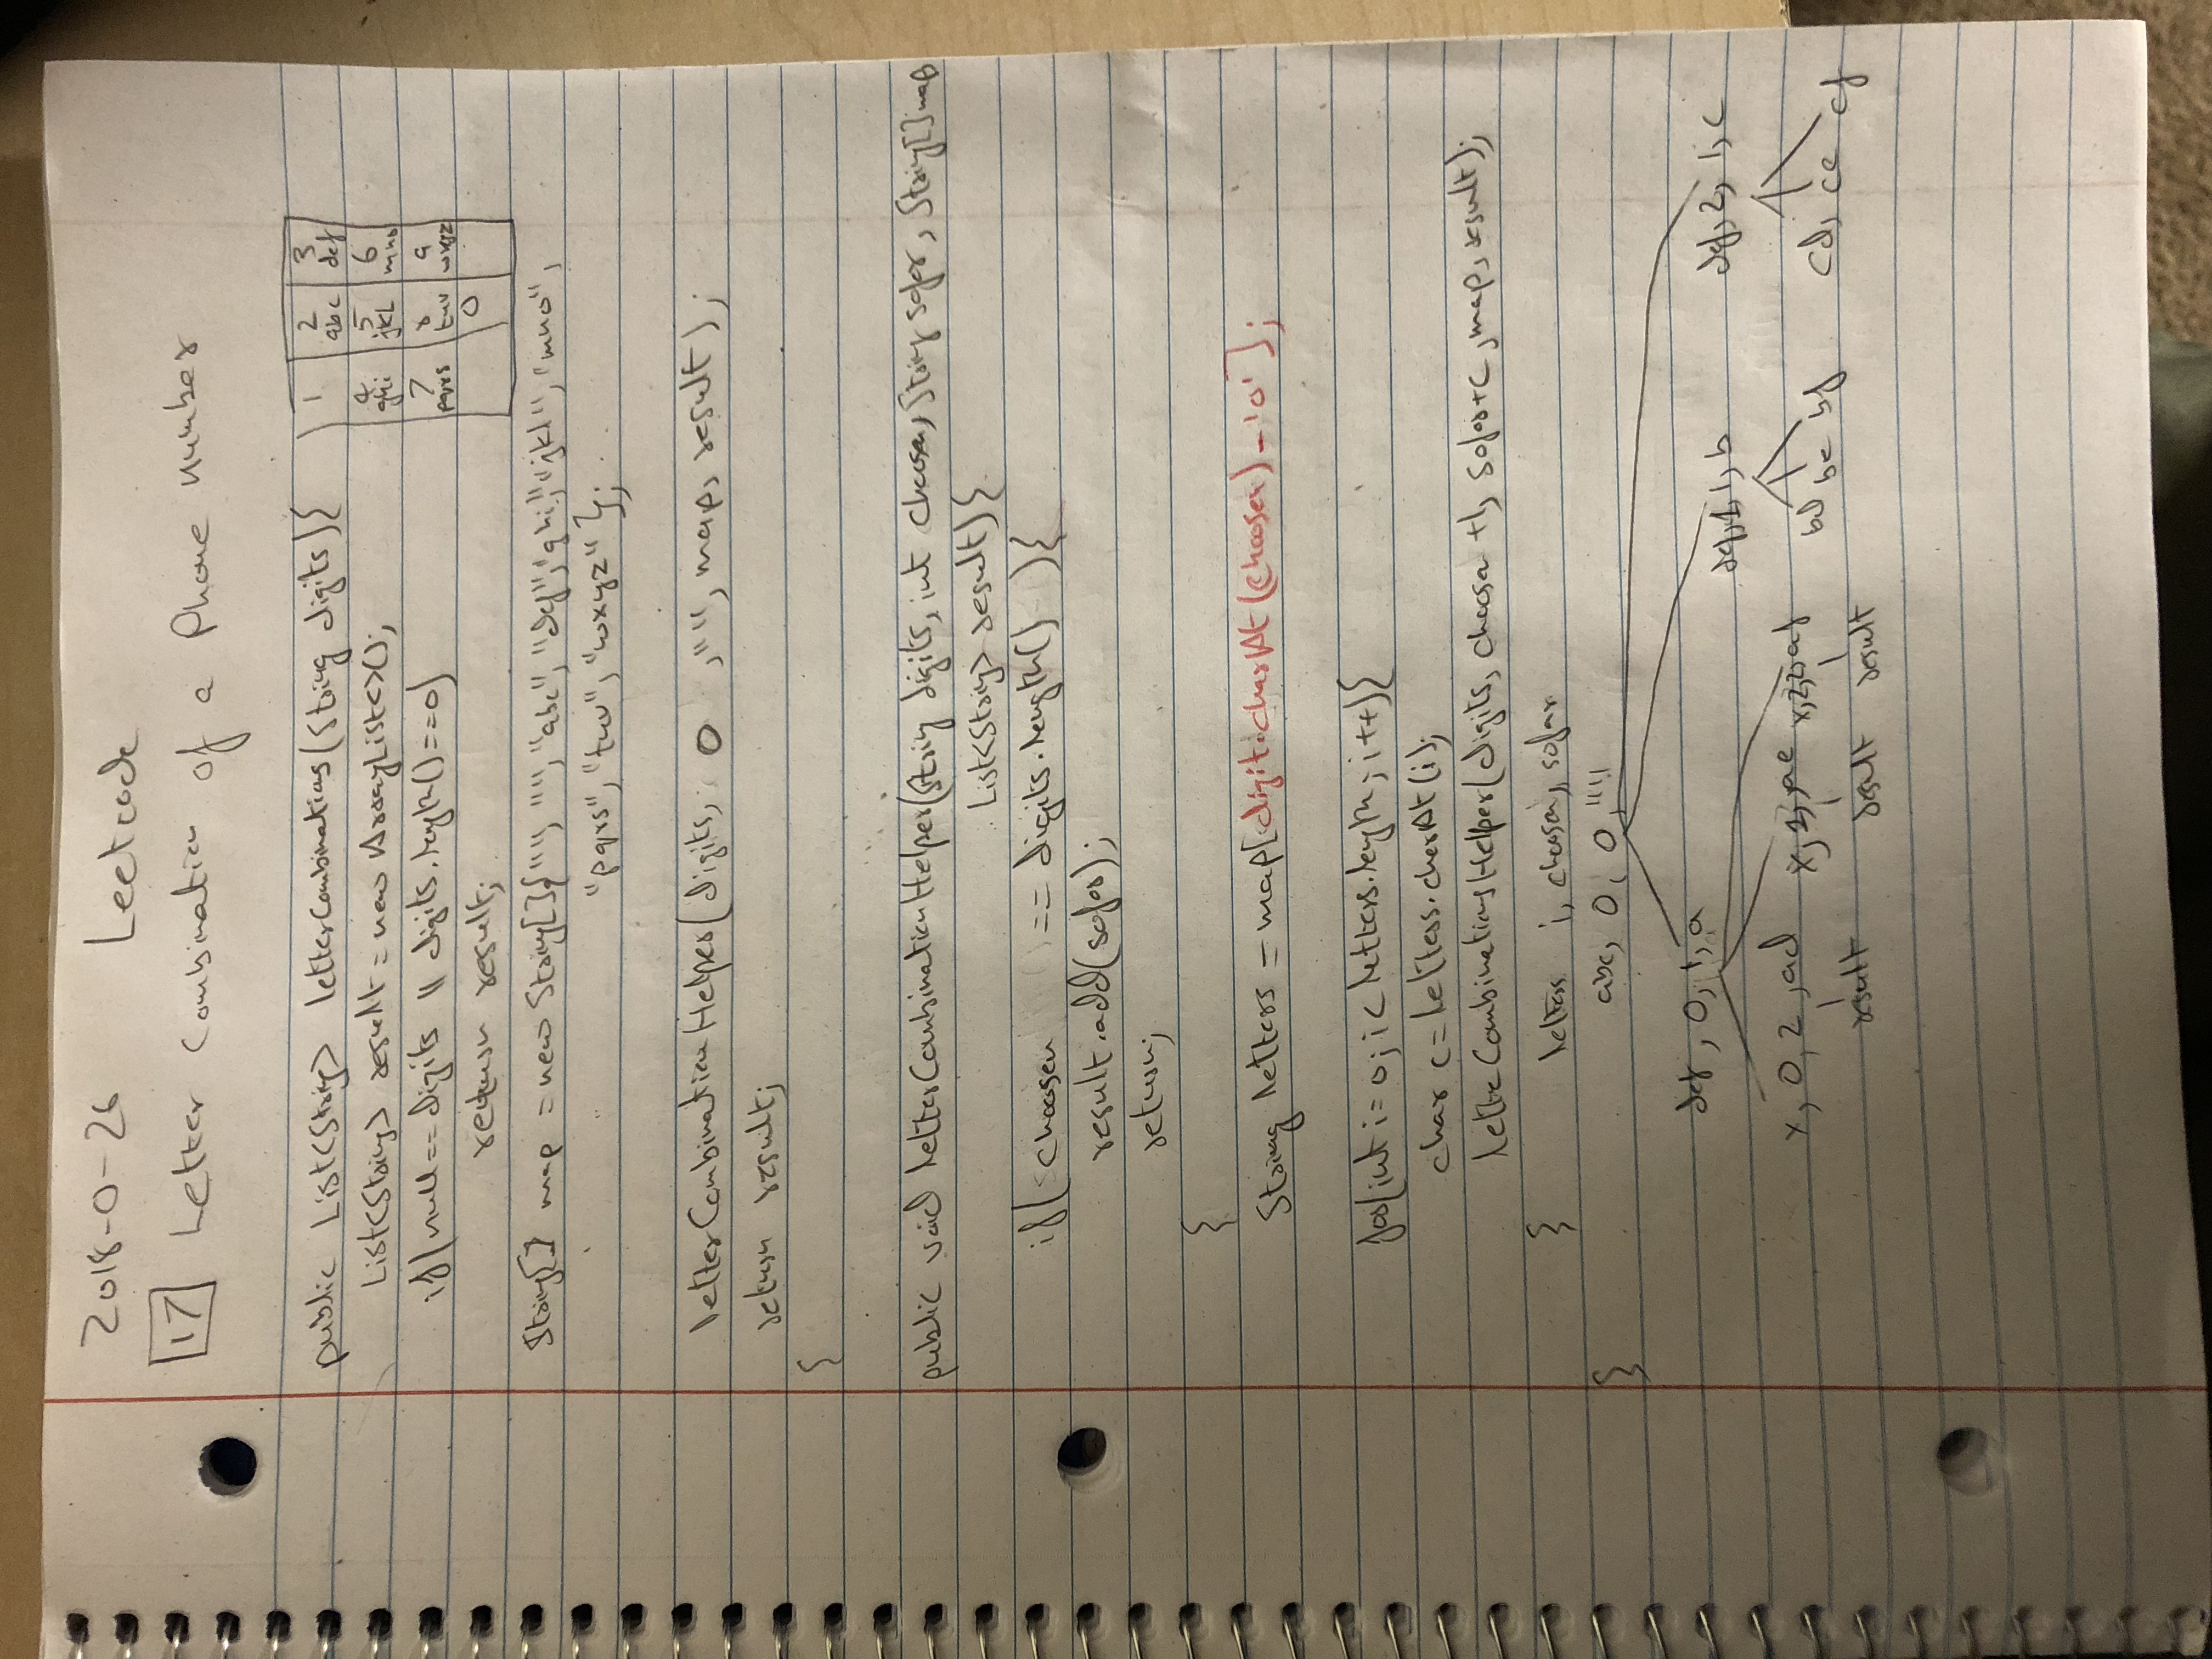 2018-0-26 Leetcode
17 Letter Combination of a Phone Number
public List<String> letterCombinations(String digits){
List<String> result = new ArrayList<>();
if(null==digits || digits.length()==0)
return result;
String[] map = new String[]{"", "", "abc", "def", "ghi", "jkl", "mno",
"pqrs", "tuv", "wxyz"};
1 2 3
abc def
4 5 6
ghi jkl mno
7 8 9
pqrs tuv wxyz
0
letterCombinationHelper(digits, 0 ,"", map, result);
return result;
{
public void letterCombinationHelper(String digits, int choosen, String sofar, String[] map
List<String> result){
if( choosen == digits.length() ){
result.add(sofar);
return;
{
String letters = map[digit.charAt(choosen)-'0'];
for(int i=0; i< letters.length; i++){
char c=letters.charAt(i);
letteCombinationsHelper(digits, choosen +1, sofar+c, map, result);
} letters i, choosen, sofar
abc, 0, 0, ""
}
def, 0, 1, a def, 1, 1, b def, 2, 1, c
x, 0, 2, ad x, 1, ae x, 2, 2, af bd be bf cd, ce cf
result result result